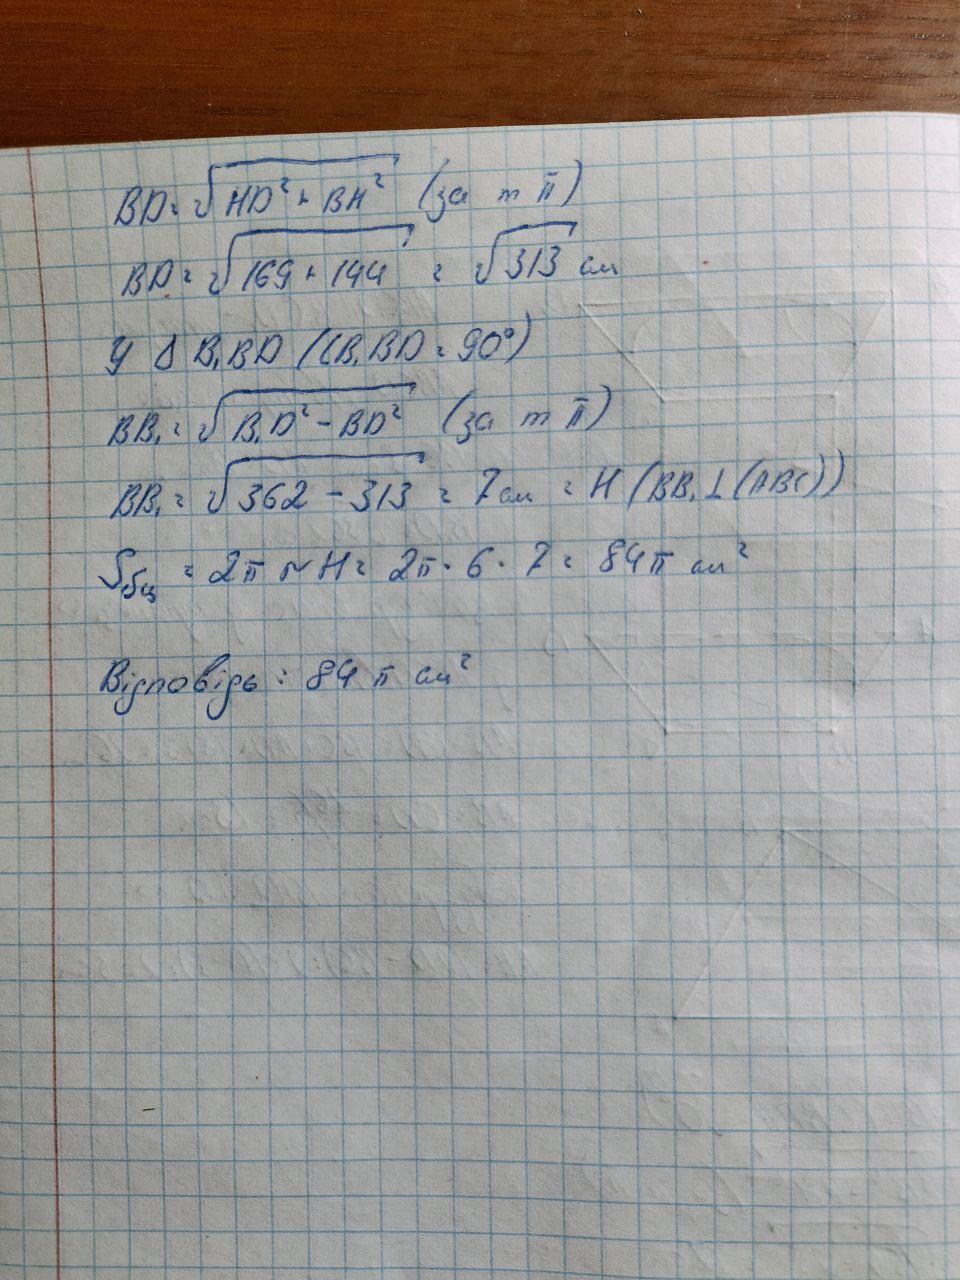 BD = √HD² + BH² (за т П)
BD = √169 + 144 = √313 см
У Δ B₁BD (∠B₁BD = 90°)
BB₁ = √B₁D² - BD² (за т П)
BB₁ = √362 - 313 = 7 см = H (BB₁ ⊥ (ABC))
Sбц = 2π r H = 2π · 6 · 7 = 84π см²
Відповідь: 84 π см²